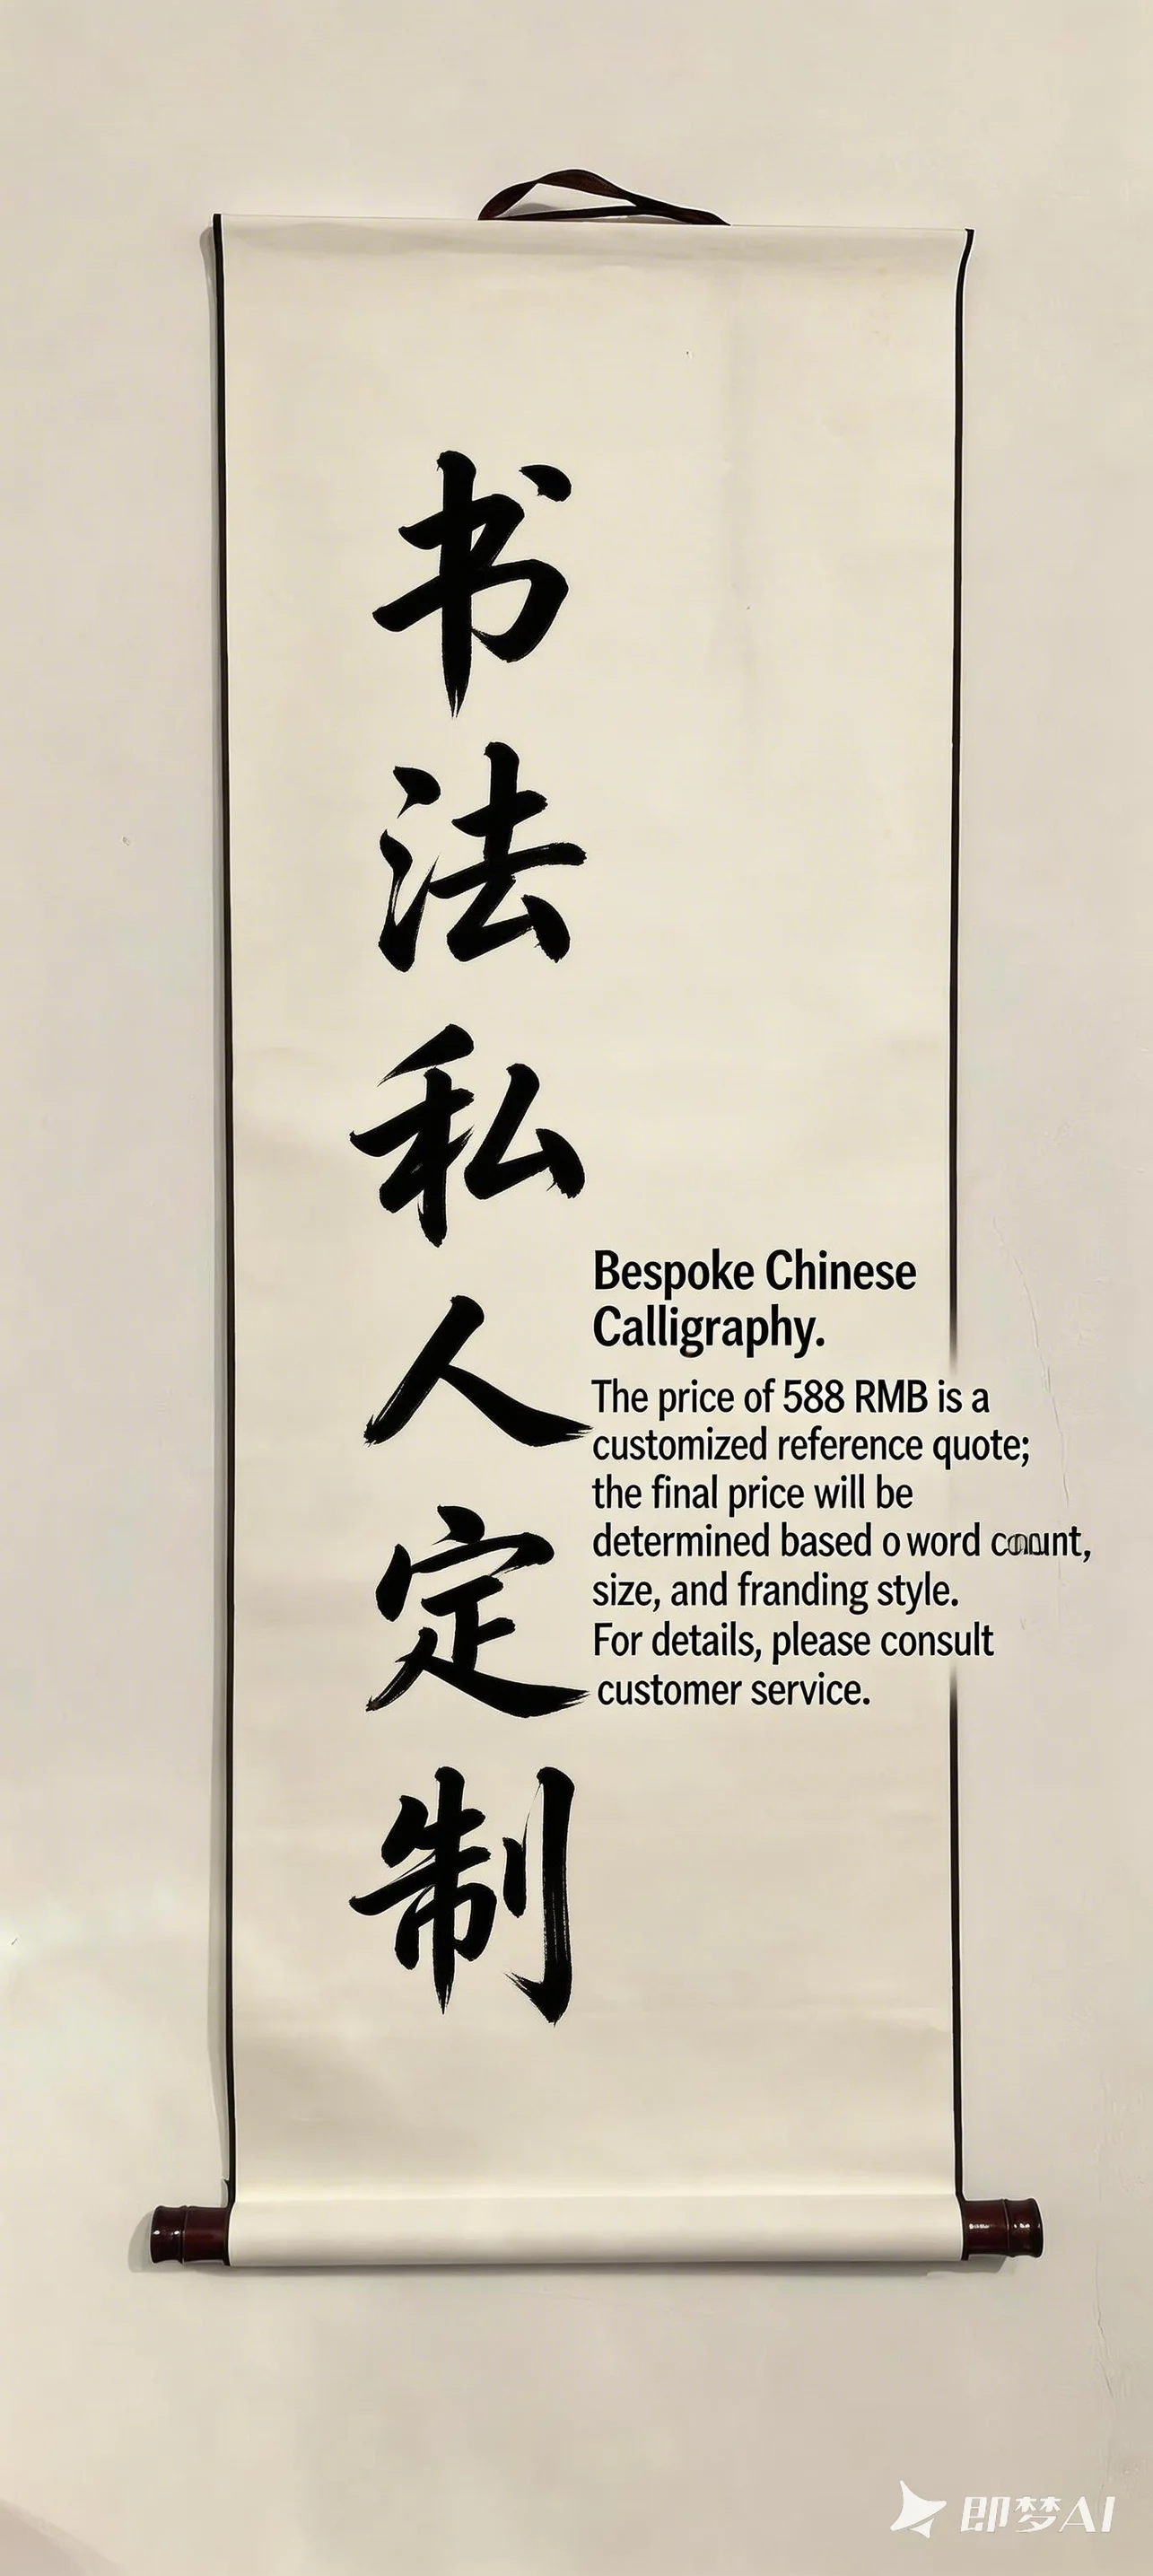 书法私人定制
Bespoke Chinese
Calligraphy.
The price of 588 RMB is a
customized reference quote;
the final price will be
determined based o word
size, and franding style.
For details, please consult
customer service.
即梦AI